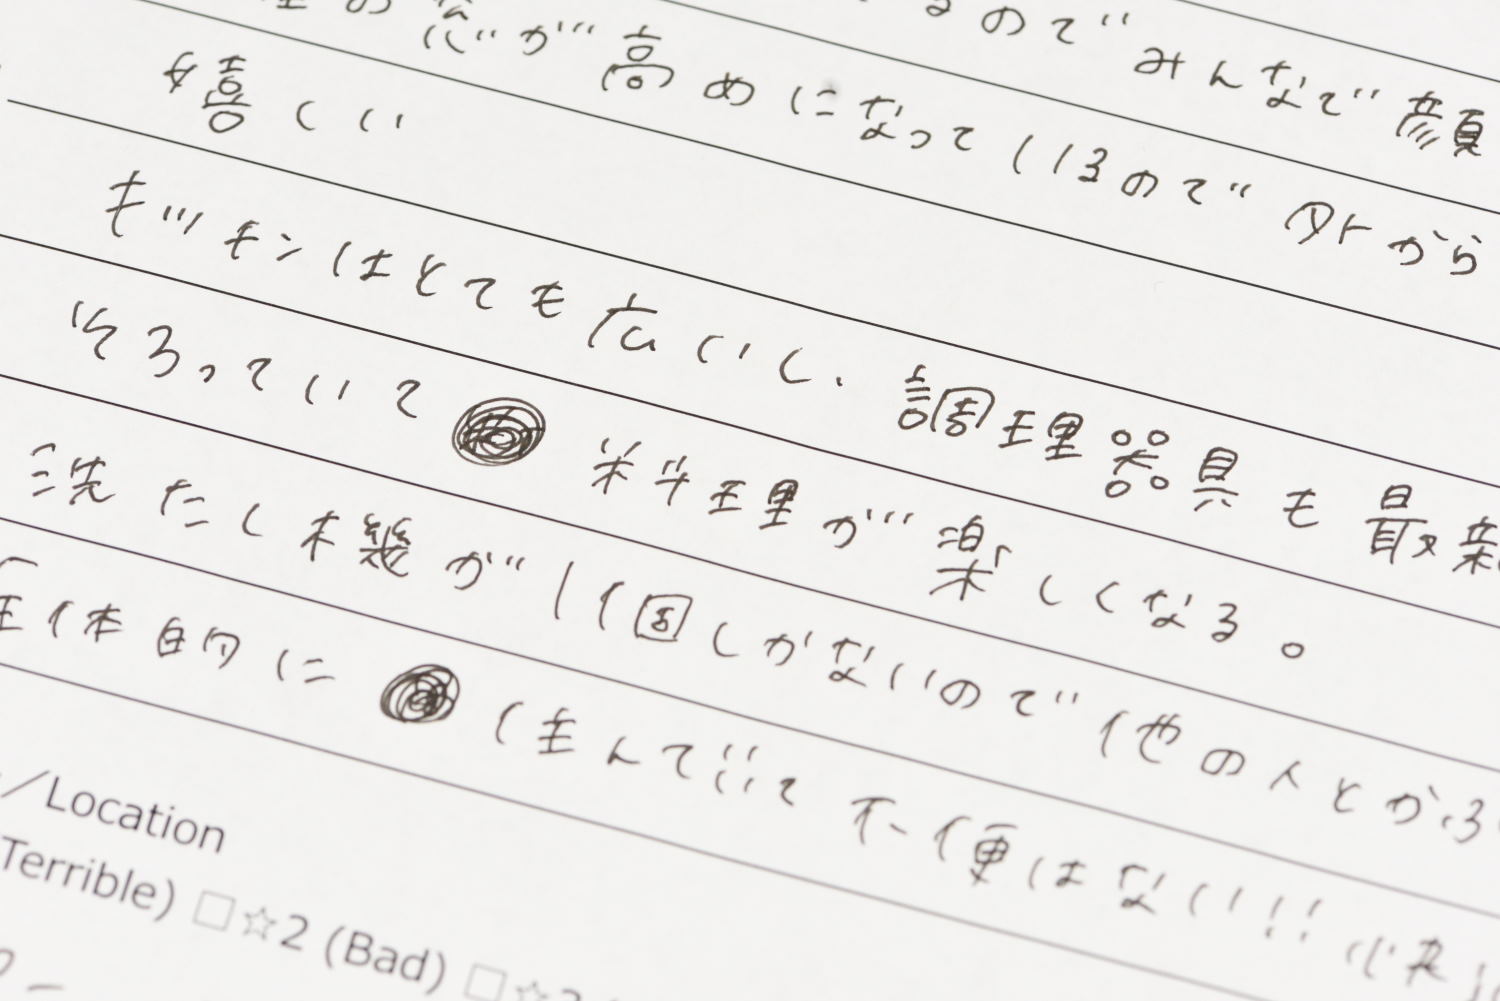 るのでみんなで顔
窓が高めになっているので外から
嬉しい
キッチンはとても広いし、調理器具も最新
そろっていて 料理が楽しくなる。
洗たし木幾が1個しかないので他の人とかぶ
全体的に 住んでいて不便はない!! 快適
/Location
Terrible) □☆2 (Bad) □☆3